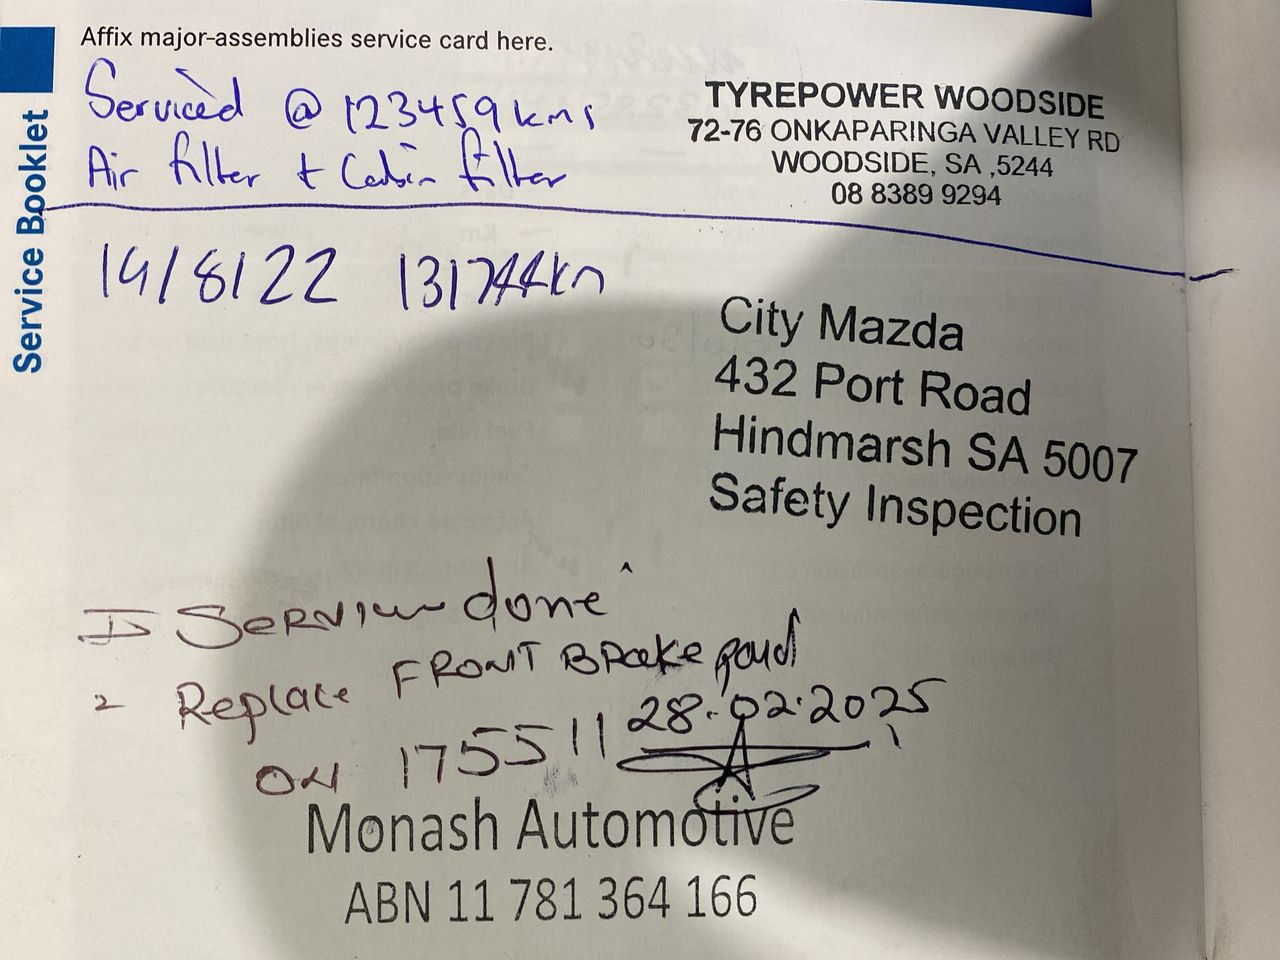 Affix major-assemblies service card here.
Service Booklet
Serviced @ 123459 kms
Air filter + Cabin filter
TYREPOWER WOODSIDE
72-76 ONKAPARINGA VALLEY RD
WOODSIDE, SA ,5244
08 8389 9294
14/8/22 131744km
City Mazda
432 Port Road
Hindmarsh SA 5007
Safety Inspection
SERVICE done
2 Replace FRONT BRake paud
ON 175511 28.02.2025
Monash Automotive
ABN 11 781 364 166